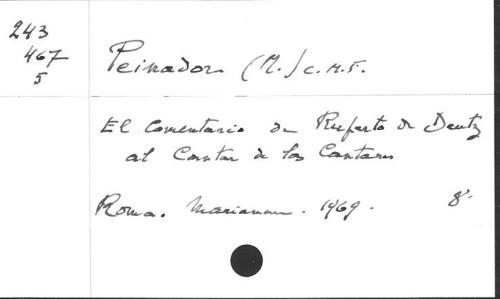 243
467
5
Peinador (M.) C.M.F.
El Comentario de Ruperto de Deutz
al Cantar de los Cantares
Roma. Marianum. 1969. 8º.